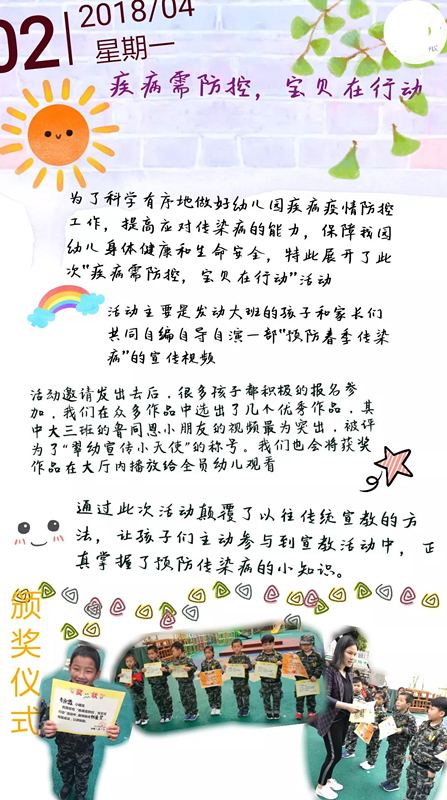 02
2018/04
星期一
疾病需防控，宝贝在行动
为了科学有序地做好幼儿园疾病疫情防控
工作，提高应对传染病的能力，保障我园
幼儿身体健康和生命安全，特此展开了此
次“疾病需防控，宝贝在行动”活动
活动主要是发动大班的孩子和家长们
共同自编自导自演一部“预防春季传染
病”的宣传视频
活动邀请发出去后，很多孩子都积极的报名参
加，我们在众多作品中选出了几个优秀作品，其
中大三班的鲁同恩小朋友的视频最为突出，被评
为了“翠幼宣传小天使”的称号。我们也会将获奖
作品在大厅内播放给全员幼儿观看
通过此次活动颠覆了以往传统宣教的方
法，让孩子们主动参与到宣教活动中，正
真掌握了预防传染病的小知识。
颁奖仪式
奖状